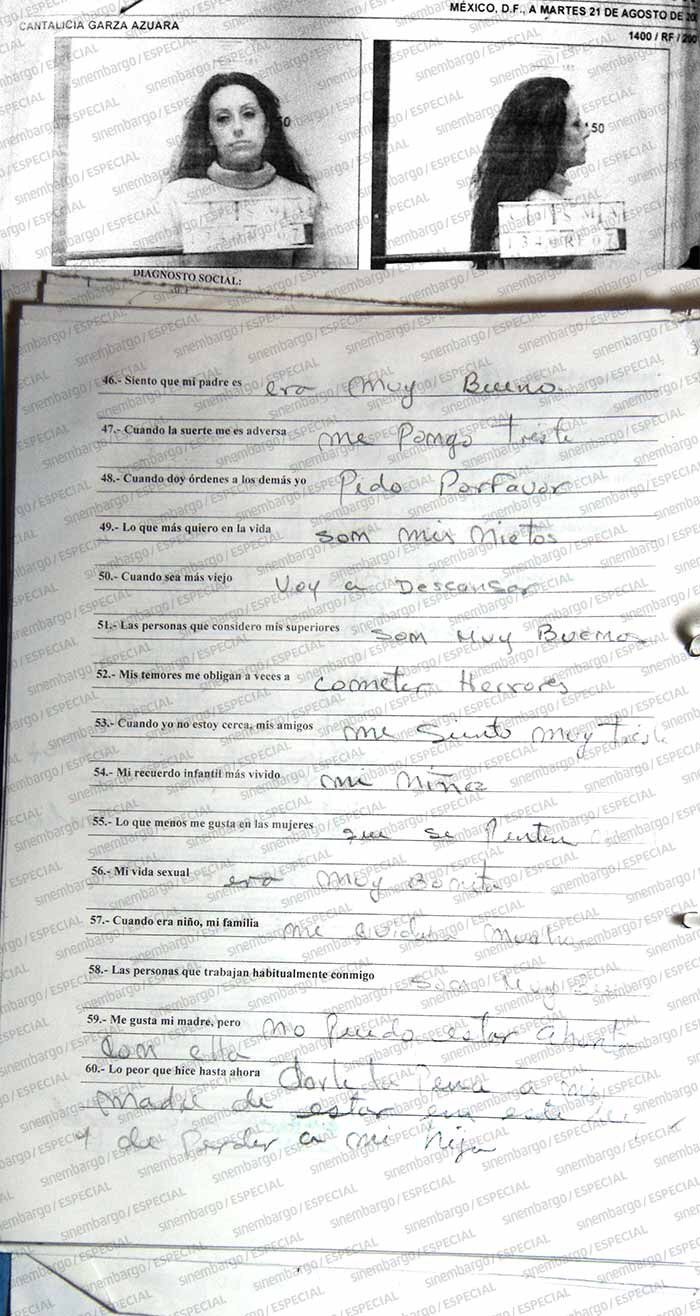 MÉXICO, D.F., A MARTES 21 DE AGOSTO DE
CANTALICIA GARZA AZUARA
1400 / RF / 200
50
50
DIAGNOSTO SOCIAL:
46.- Siento que mi padre es era muy Bueno.
47.- Cuando la suerte me es adversa me Pongo Triste
48.- Cuando doy órdenes a los demás yo Pido Porfavor
49.- Lo que más quiero en la vida som mis Nietos
50.- Cuando sea más viejo Voy a Descansar
51.- Las personas que considero mis superiores som muy Buemos
52.- Mis temores me obligan a veces a cometer Herrores
53.- Cuando yo no estoy cerca, mis amigos me Siento muy Triste
54.- Mi recuerdo infantil más vivido mi niñez
55.- Lo que menos me gusta en las mujeres que se Pinten
56.- Mi vida sexual era muy Bonita
57.- Cuando era niño, mi familia me cuidaba mucho
58.- Las personas que trabajan habitualmente conmigo som muy
59.- Me gusta mi madre, pero no Puedo estar ahorita
com ella
60.- Lo peor que hice hasta ahora darle la Pena a mi
madre de estar em este
y de Perder a mi hija
sinembargo / ESPECIAL